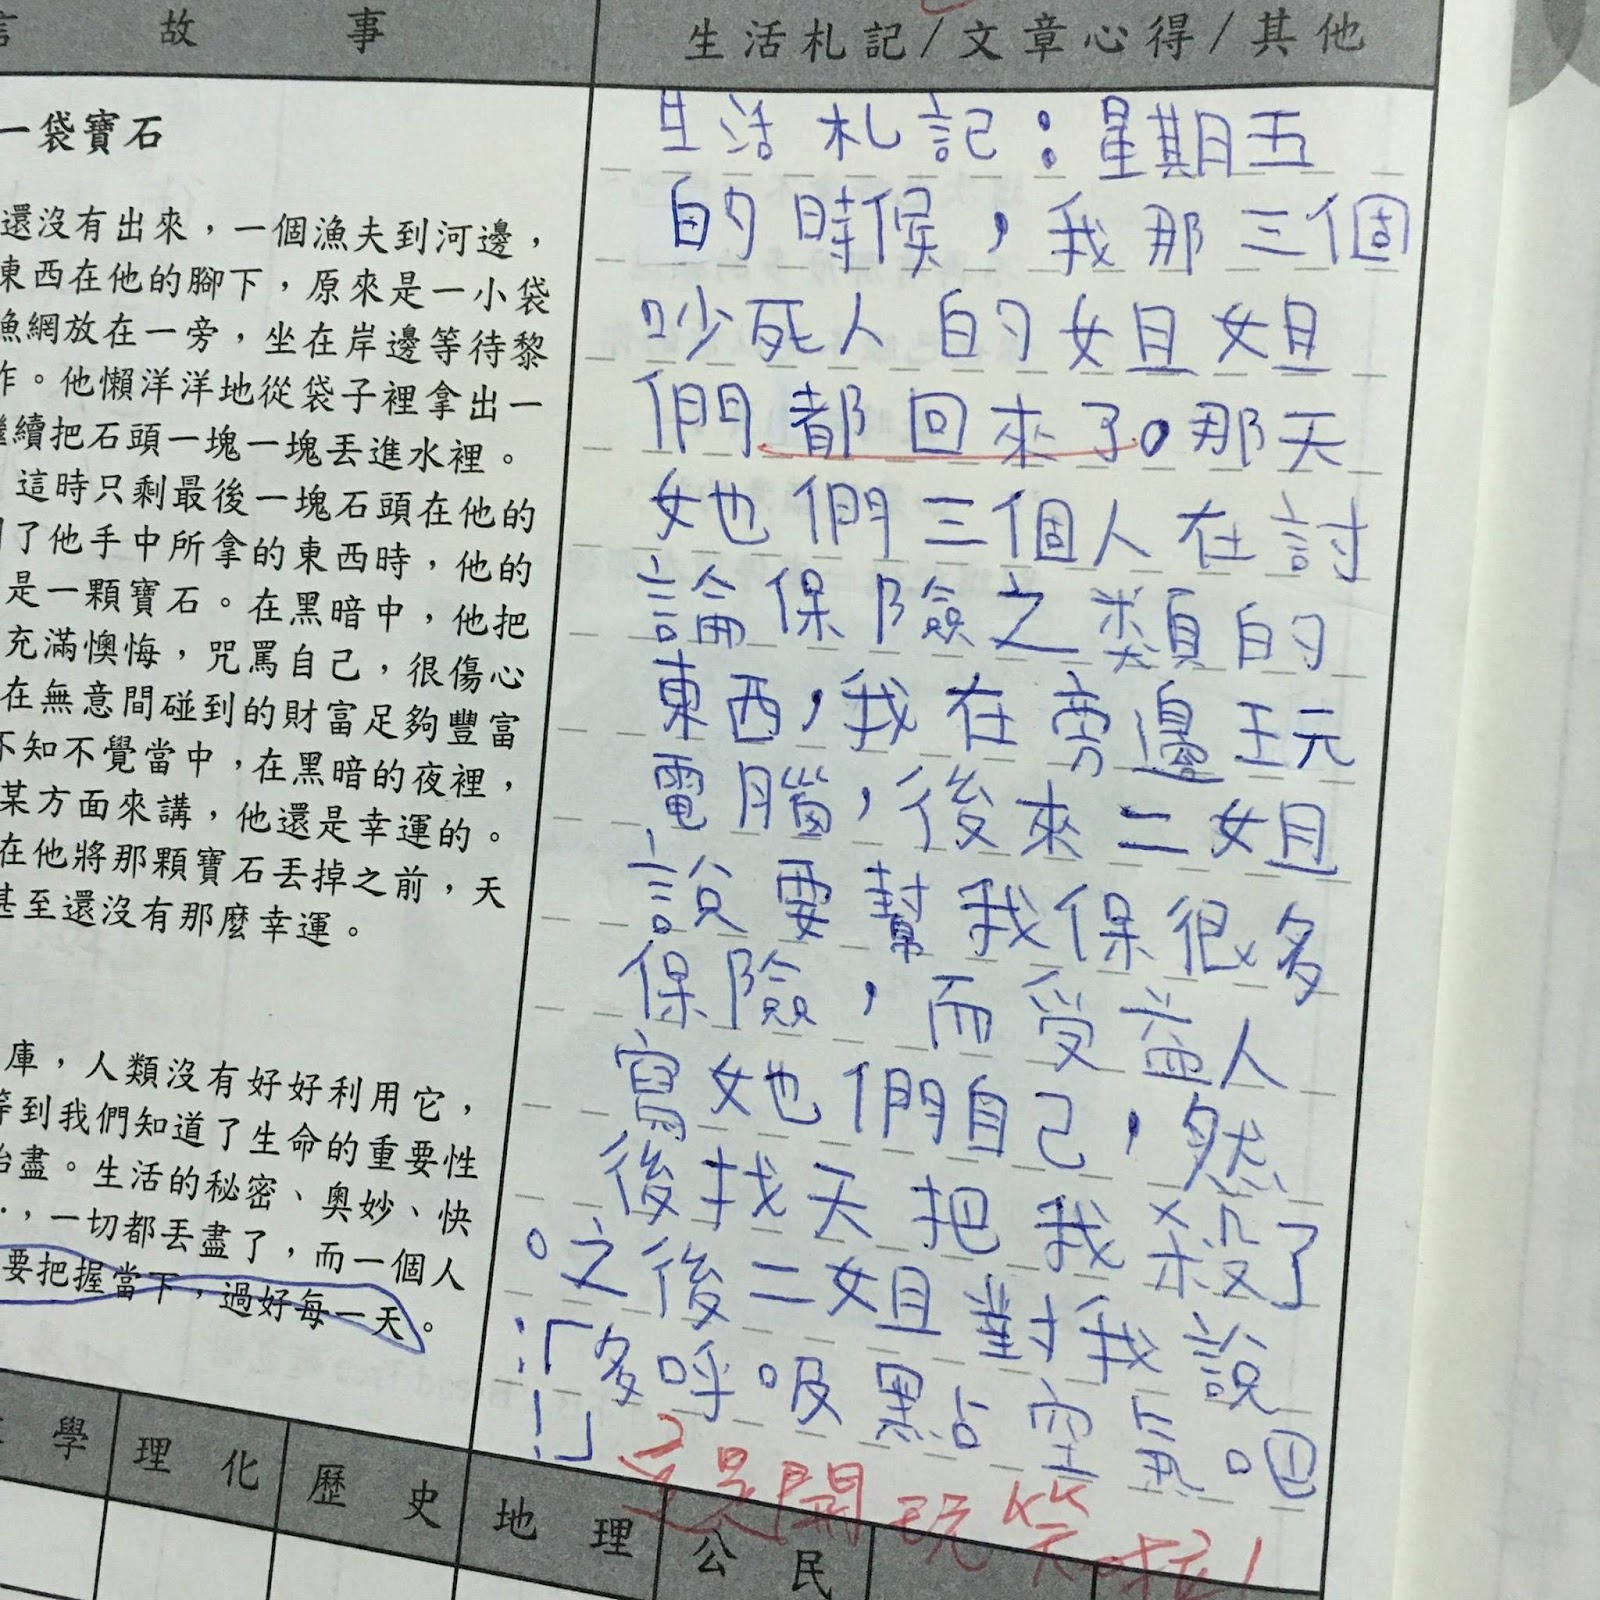 故事
一袋寶石
還沒有出來，一個漁夫到河邊，
東西在他的腳下，原來是一小袋
漁網放在一旁，坐在岸邊等待黎
作。他懶洋洋地從袋子裡拿出一
繼續把石頭一塊一塊丟進水裡。
這時只剩最後一塊石頭在他的
了他手中所拿的東西時，他的
是一顆寶石。在黑暗中，他把
充滿懊悔，咒罵自己，很傷心
在無意間碰到的財富足夠豐富
不知不覺當中，在黑暗的夜裡，
某方面來講，他還是幸運的。
在他將那顆寶石丟掉之前，天
甚至還沒有那麼幸運。
庫，人類沒有好好利用它，
等到我們知道了生命的重要性
殆盡。生活的秘密、奧妙、快
，一切都丟盡了，而一個人
要把握當下，過好每一天。
生活札記/文章心得/其他
生活札記：星期五
的時候，我那三個
吵死人的姐姐
們都回來了。那天
她們三個人在討
論保險之類的
東西，我在旁邊玩
電腦，後來二姐
說要幫我保很多
保險，而受益人
寫她們自己，然
後找天把我殺了
。之後二姐對我說
：「多呼吸點空氣吧
！」
這是開玩笑啦！
學 理化 歷史 地理 公民